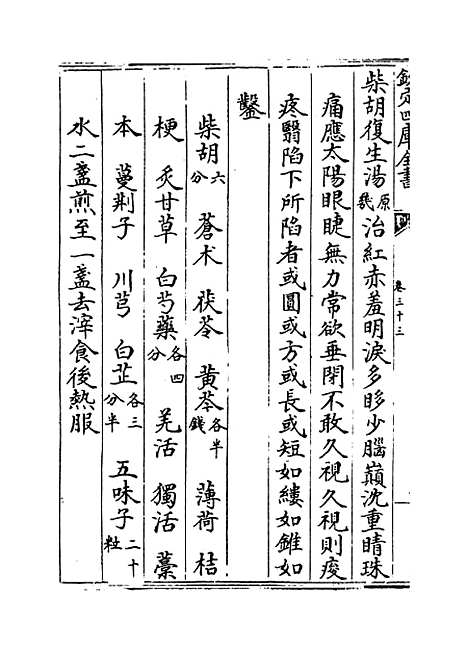 欽定四庫全書
卷三十三
柴胡復生湯原機治紅赤羞明淚多眵少腦巔沈重睛珠
痛應太陽眼睫無力常欲垂閉不敢久視久視則痠
疼翳陷下所陷者或圓或方或長或短如縷如錐如
鑿
柴胡六分 蒼术 茯苓 黄芩各半錢 薄荷 桔
梗 炙甘草 白芍藥各四分 羌活 獨活 藁
本 蔓荆子 川芎 白芷各三分半 五味子二十粒
水二盞煎至一盞去滓食後熱服